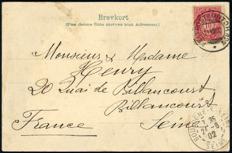 Brevkort
(Paa denne Side skrives kun Adressen)
Monsieur & Madame
Henry
20 Quai de Billancourt
Billancourt
Seine
France